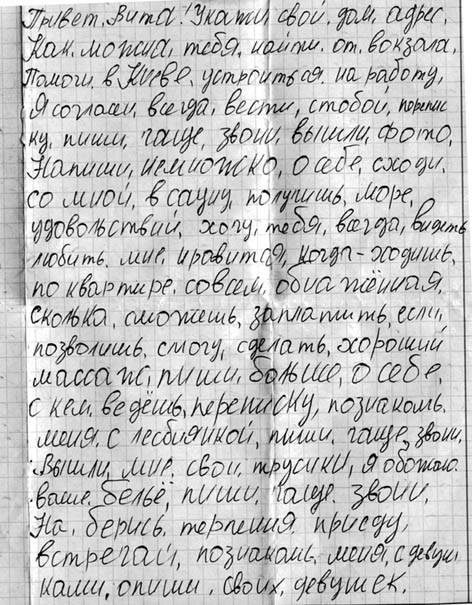 Привет, Вита! Укажи свой, дом, адрес,
Как. можна, тебя, найти. от. вокзала,
Помоги. в Киеве, устроиться. на работу,
Я согласен, всегда, вести, стобой, перепис
ку, пиши, чаще, звони, вышли, фото,
Напиши, немножко, о себе, сходи,
со мной, в сауну, получишь, море,
удовольствий, хочу, тебя, всегда, видеть
любить. мне, нравится, когда-ходишь,
по квартире, совсем, обнажённая,
сколька, сможешь, заплатить, если,
позволишь, смогу, сделать, хороший
массаж, пиши, больше, о себе,
с кем, ведёшь, переписку, познакомь.
меня, с лесбиянкой, пиши, чаще, звони,
Вышли, мне, свои, трусики, я обожаю.
ваше, бельё, пиши, чаще, звони,
На, берись, терпения приеду,
встречай, познакомь, меня, с девуш
ками, опиши, своих, девушек,